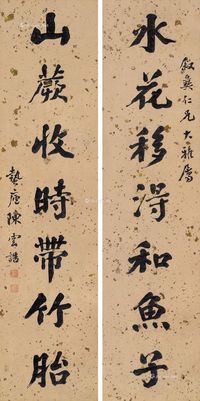 叙彝仁兄大雅属
水花移得和魚子
山蕨收時帶竹胎
蟄庵陳雲誥